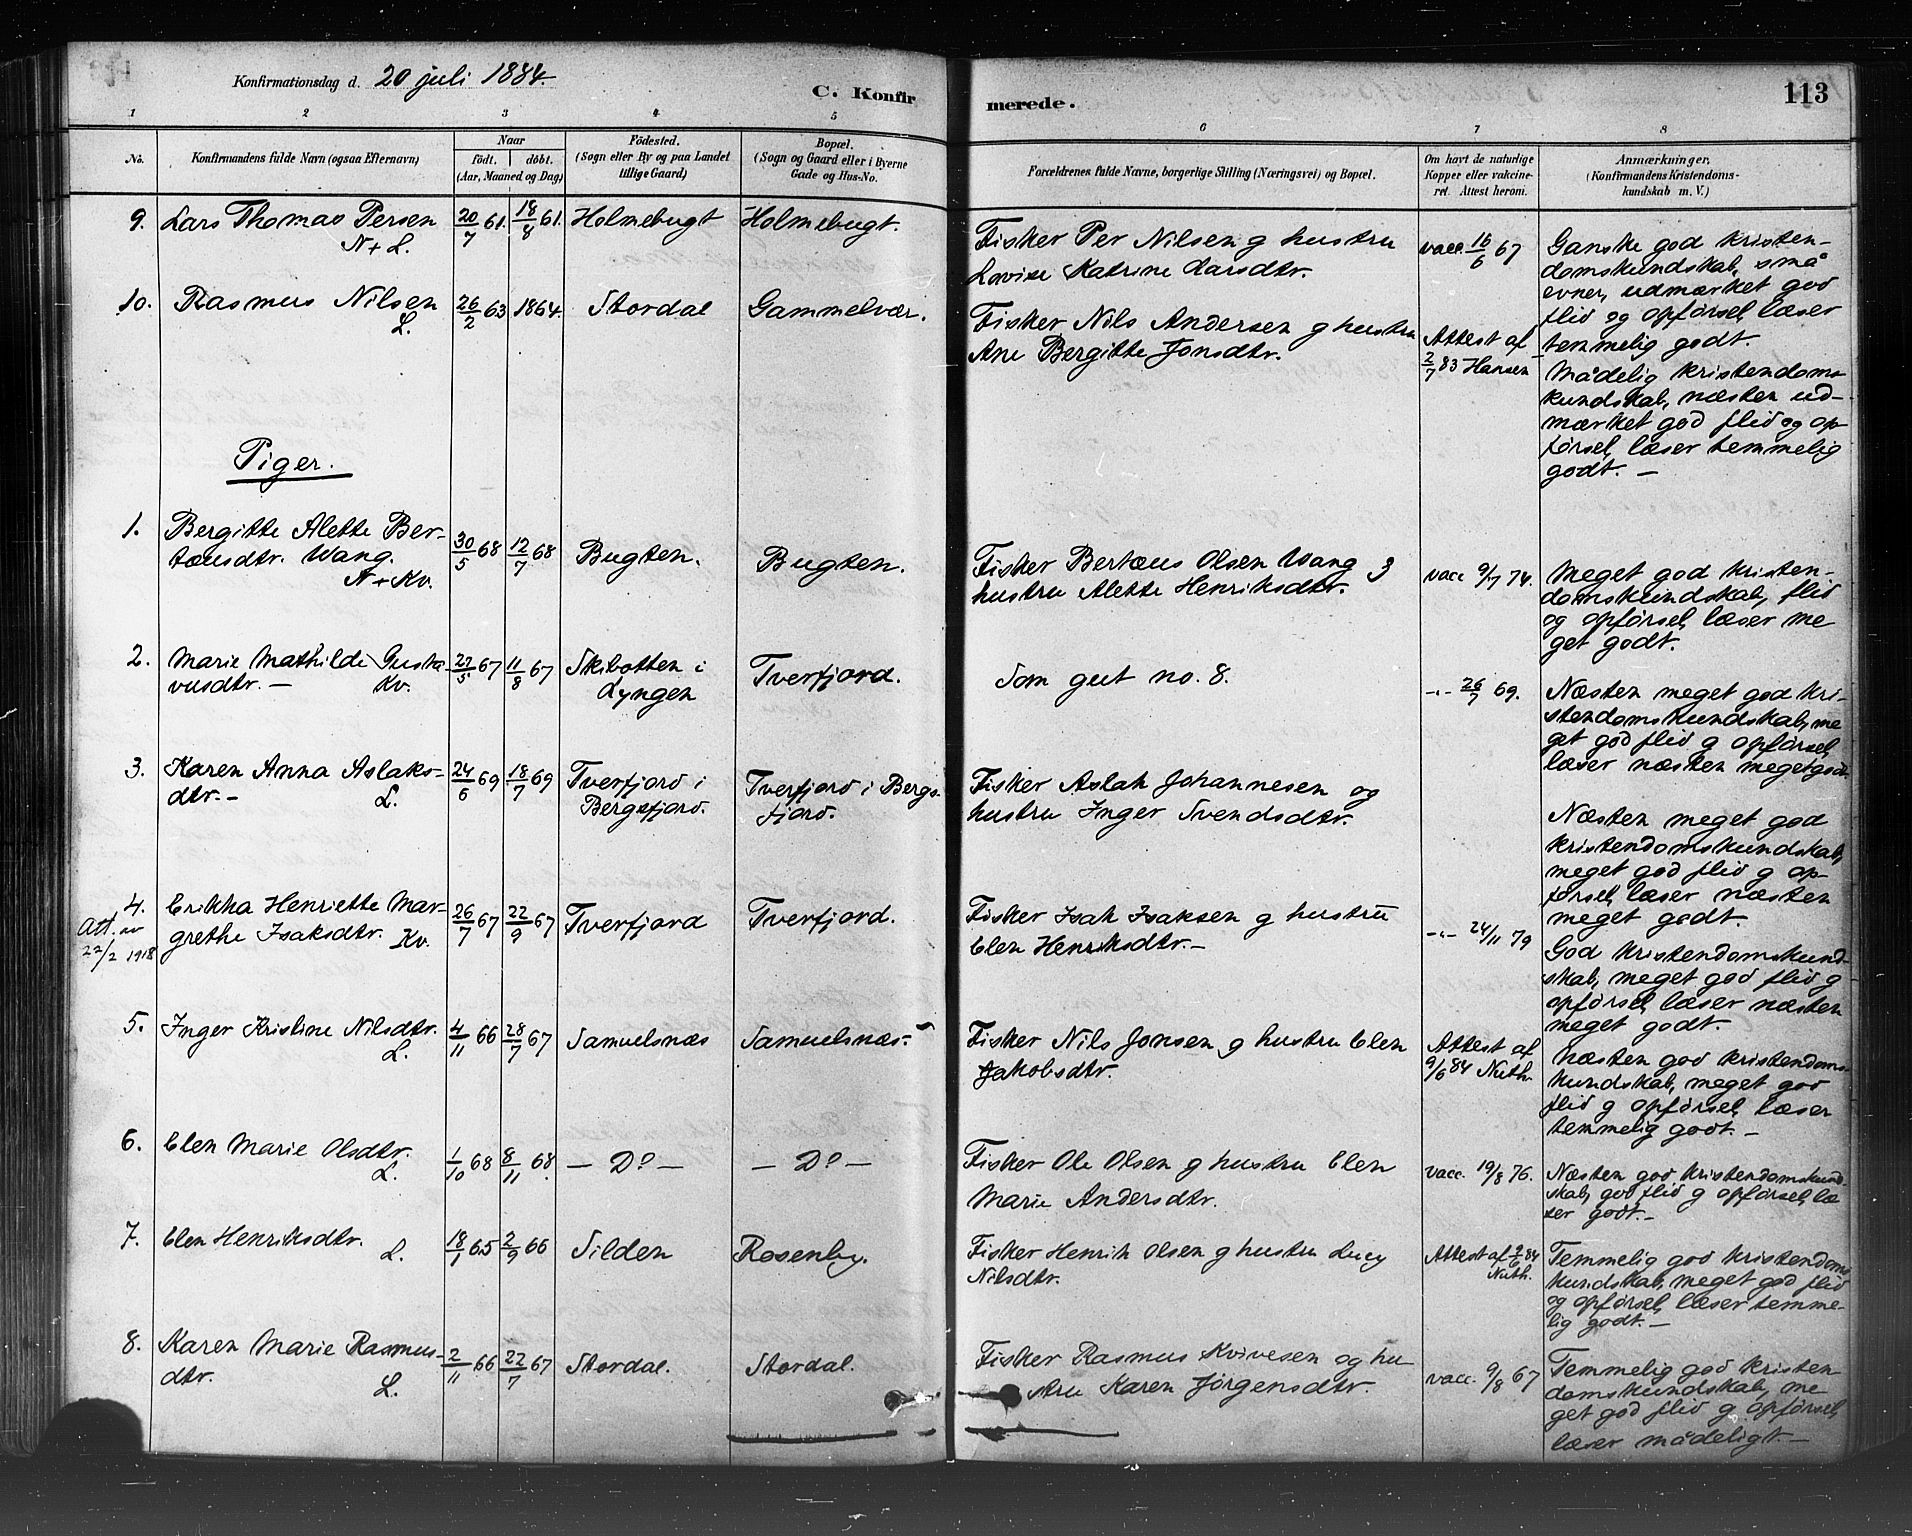 Konfirmationsdag d. 20 juli 1884.
C. Konfir
merede.
113
1 2 3 4 5 6 7 8
No.
Konfirmandens fulde Navn (ogsaa Efternavn)
Naar
født. døbt.
(Aar, Maaned og Dag)
Fødested.
(Sogn eller By og paa Landet
tillige Gaard)
Bopæl.
(Sogn og Gaard eller i Byerne
Gade og Hus-No.
Forældrenes fulde Navne, borgerlige Stilling (Næringsvei) og Bopæl.
Om havt de naturlige
Kopper eller vakcine-
ret. Attest heroni.
Anmærkninger,
(Konfirmandens Kristendoms-
kundskab m. V.)
9. Lars Thomas Persen
N + L.
20/7 61. 18/8 61. Holmebugt Holmebugt.
Fisker Per Nilsen g hustru
Lovise Katrine Larsdtr.
vacc. 16/6 67
Ganske god kristen-
domskundskab, små
evner, udmærket god
flid og opførsel, læser
temmelig godt.
10. Rasmus Nilsen
L.
26/2 63 1864. Stordal Gammelvær.
Fisker Nils Andersen g hustru
Ane Bergitte Jonsdtr.
Attest af
2/7 83 Hansen
Mådelig kristendoms-
kundskab, næsten ud-
mærket god flid og op-
førsel, læser temmelig
godt. —
Piger.
1. Bergitte Alette Ber-
tæusdtr. Wang.
N + Kv.
30/5 68 12/7 68 Bugten. Bugten.
Fisker Bertæus Olsen Wang g
hustru Alette Henriksdtr.
vacc 9/7 74.
Meget god kristen-
domskundskab, flid
og opførsel, læser me
get godt.
2. Marie Mathilde Gusta
vusdtr. — Kv.
27/5 67 11/8 67 Skibotten i
Lyngen
Tverfjord.
Som gut no. 8.
-"- 26/7 69.
Næsten meget god kri-
stendomskundskab, me
get god flid g opførsel,
læser næsten meget godt.
3. Karen Anna Aslaks-
dtr. — L.
24/6 69 18/7 69 Tverfjord i
Bergsfjord.
Tverfjord i Bergs-
fjord.
Fisker Aslak Johannesen og
hustru Inger Svendsdtr.
Næsten meget god
kristendomskundskab,
meget god flid g op-
førsel, læser næsten
meget godt.
4. Erikka Henriette Mar-
grethe Isaksdtr. Kv.
Att.
22/2 1918
26/7 67 22/9 67 Tverfjord Tverfjord.
Fisker Isak Isaksen g hustru
Elen Henriksdtr. —
-"- 24/11 79
God kristendomskund-
skab, meget god flid g
opførsel, læser næsten
meget godt.
5. Inger Kristine Nilsdtr.
L.
4/11 66 28/7 67 Samuelsnæs Samuelsnæs.
Fisker Nils Jonsen g hustru Elen
Jakobsdtr.
Attest af
9/6 84 Nuth.
Næsten god kristendoms-
kundskab, meget god
flid g opførsel, læser
temmelig godt. —
6. Elen Marie Olsdtr.
L.
1/10 68 8/11 68. — Do — — Do —
Fisker Ole Olsen g hustru Elen
Marie Andersdtr.
vacc. 19/8 76.
Næsten god kristendomskund-
skab, god flid g opførsel, læ
ser godt. —
7. Elen Henriksdtr. L.
18/1 65 2/9 66 Silden Rosenby.
Fisker Henrik Olsen g hustru Lucy
Nilsdtr.
Attest af 2/6 84
Nuth.
Temmelig god kristendoms
kundskab, meget god flid
og opførsel, læser temme-
lig godt. —
8. Karen Marie Rasmus-
dtr. L.
2/11 66 22/7 67 Stordal. Stordal.
Fisker Rasmus Kvivesen og hu
stru Karen Jørgensdtr.
vacc. 9/8 67
Temmelig god kristen
domskundskab, me
get god flid g opførsel,
læser mådeligt. —